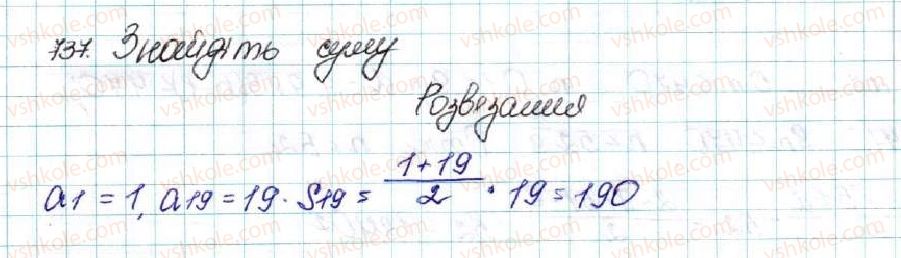 737. Знайдіть суму
Розвязання
a1 = 1, a19 = 19. S19 = (1+19)/2 · 19 = 190